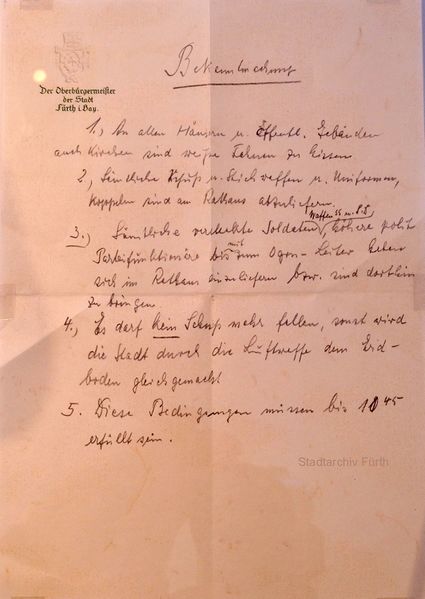 Der Oberbürgermeister
der Stadt
Fürth i. Bay.
Bekanntmachung
1., An allen Häusern u. öffentl. Gebäuden
auch Kirchen sind weiße Fahnen zu hissen
2., Sämtliche Schuß u. Stichwaffen u. Uniformen,
Koppeln sind am Rathaus abzuliefern.
Waffen SS u. S.S.
3.) Sämtliche versteckte Soldaten, höhere polit
Parteifunktionäre bis mit zum Ogru-Leiter haben
sich im Rathaus einzuliefern bzw. sind dorthin
zu bringen
4., Es darf kein Schuß mehr fallen, sonst wird
die Stadt durch die Luftwaffe dem Erd-
boden gleichgemacht
5. Diese Bedingungen müssen bis 10 45
erfüllt sein.
Stadtarchiv Fürth